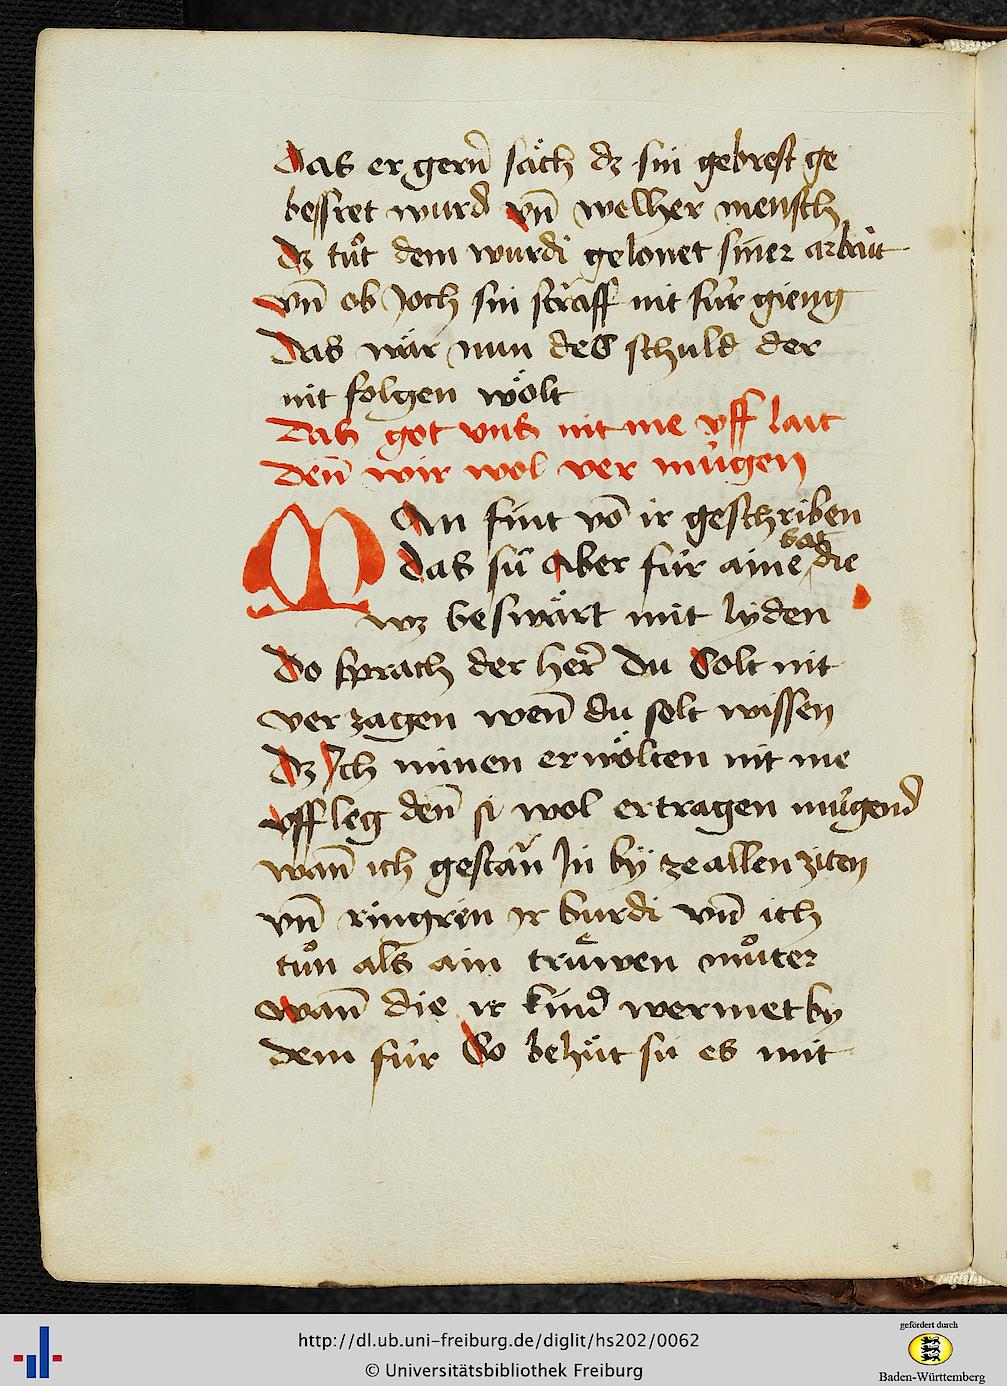 Das er gern̄ säch dz sin gebrest ge
bessret wurd vn̄ welher mensch
dz tůt dem wurdi gelonet siner arbait
vn̄ ob joch sin straff nit für gieng
Das wär nun des schuld der
nit folgen wölt
Das got vns nit me vff lait
den̄ wir wol ver mügen
MAn fint vō ir geschriben
das sü aber für aine bat die
wz beswärt mit lyden
Do sprach der her̄ Du Solt nit
ver zagen wen̄ du solt wissen
dz Ich minen erwölten nit me
vff leg den̄ si wol ertragen mügend
wan̄ ich gestan̄ In by ze allen ziten
vn̄ ringren ir burdi vn̄ ich
tůn als ain trüwen můter
wan̄ die ir kind wermet by
dem für So behüt sü es mit
http://dl.ub.uni-freiburg.de/diglit/hs202/0062
© Universitätsbibliothek Freiburg
gefördert durch
Baden-Württemberg